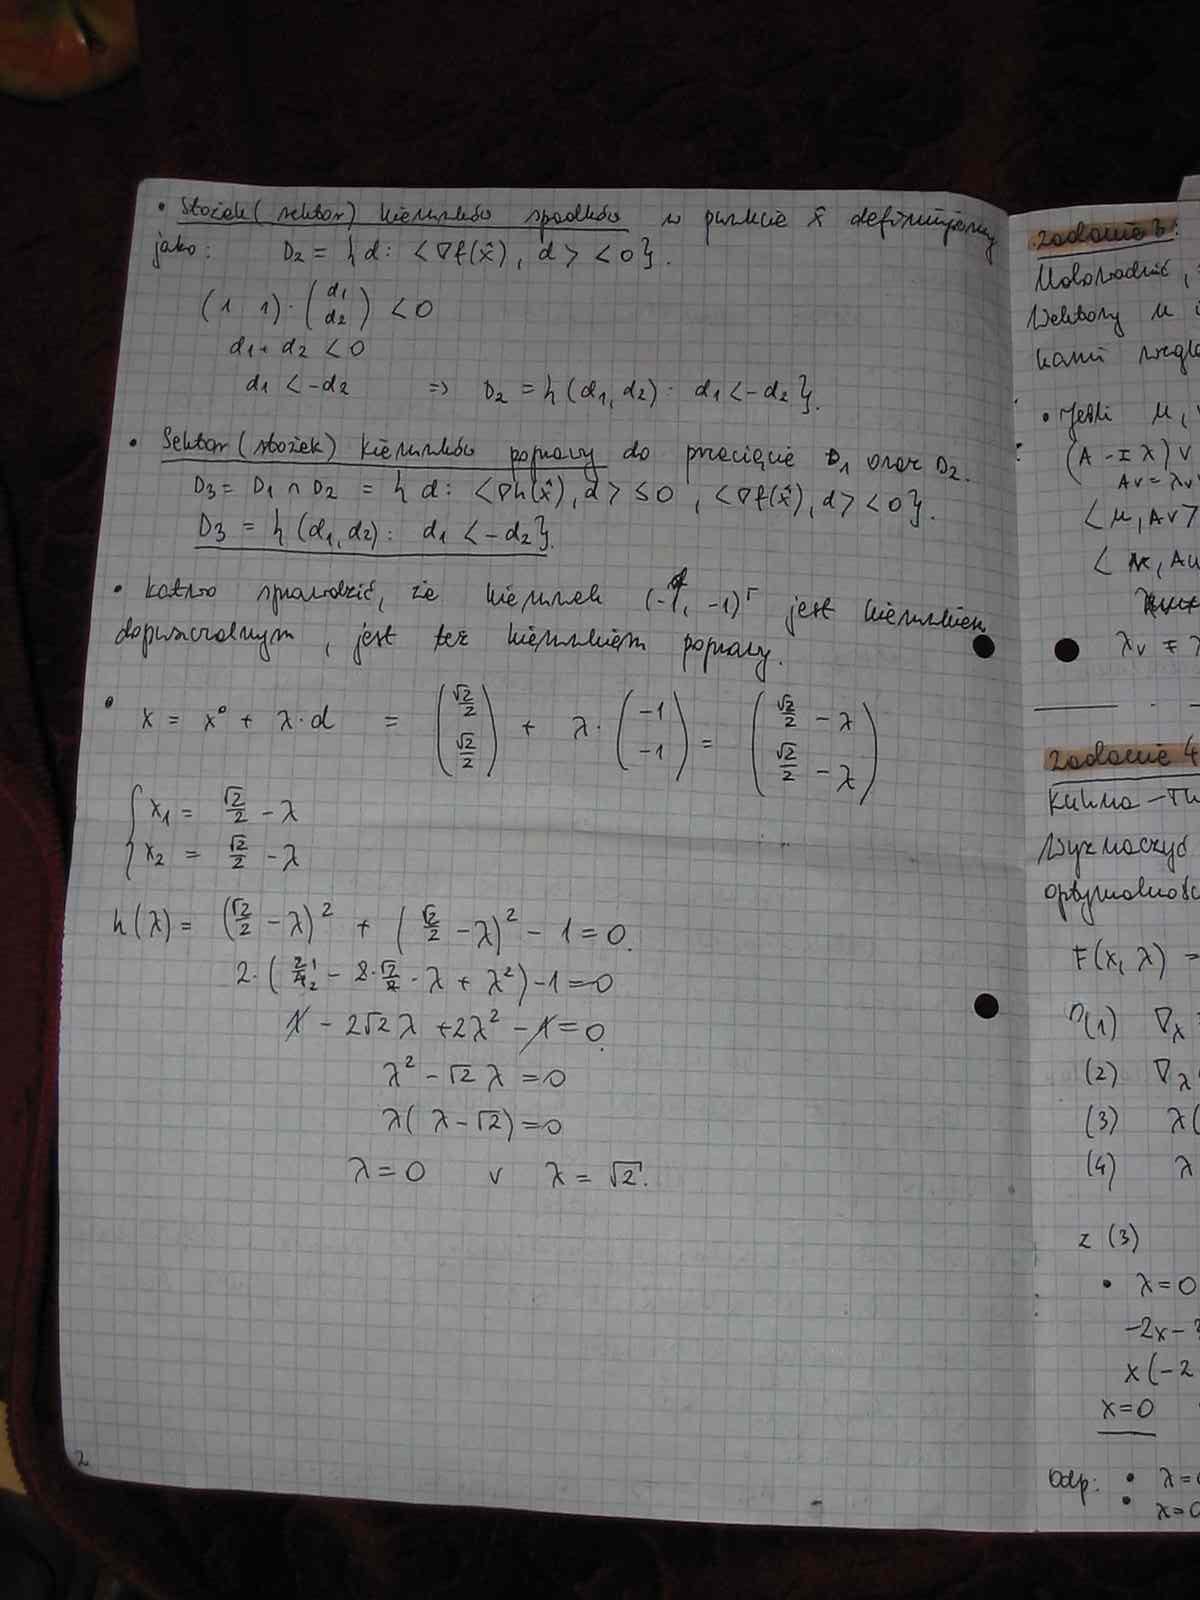 • Stożek (sektor) kierunków spadków w punkcie x̂ definiujemy
jako: D₂ = { d: <∇f(x̂), d> <0}.
(1 1)·(d₁ d₂) <0
d₁+d₂ <0
d₁ <-d₂ => D₂ = { (d₁, d₂): d₁ <-d₂ }.
• Sektor (stożek) kierunków poprawy do przecięcie D₁ oraz D₂.
D₃ = D₁ ∩ D₂ = { d: <∇h(x̂), d> ≤0, <∇f(x̂), d> <0}.
D₃ = { (d₁, d₂): d₁ <-d₂}.
• Łatwo sprawdzić, że kierunek (-1, -1)ᵀ jest kierunkiem
dopuszczalnym, jest też kierunkiem poprawy.
• x = x⁰ + λ·d = (√2/2 √2/2) + λ·(-1 -1) = (√2/2 - λ √2/2 - λ)
{ x₁ = √2/2 - λ
x₂ = √2/2 - λ
h(λ) = (√2/2 - λ)² + (√2/2 - λ)² - 1 = 0.
2·(2/4 - 2·√2/2·λ + λ²) - 1 = 0
1 - 2√2λ + 2λ² - 1 = 0.
λ² - √2 λ = 0
λ(λ - √2) = 0
λ = 0 v λ = √2.
2
zadanie 3:
Wektory u
• Jeśli u, v
(A - I λ) v
Av = λv
<u, Av>
< , Au
zadanie 4
Kuhna - Tu
Wyznaczyć
optymalności
F(x, λ) =
(1) ∇x
(2) ∇λ
(3) λ(
(4) λ
z (3)
• λ=0
-2x-
x(-2
x=0
Odp: • λ=
• x=0